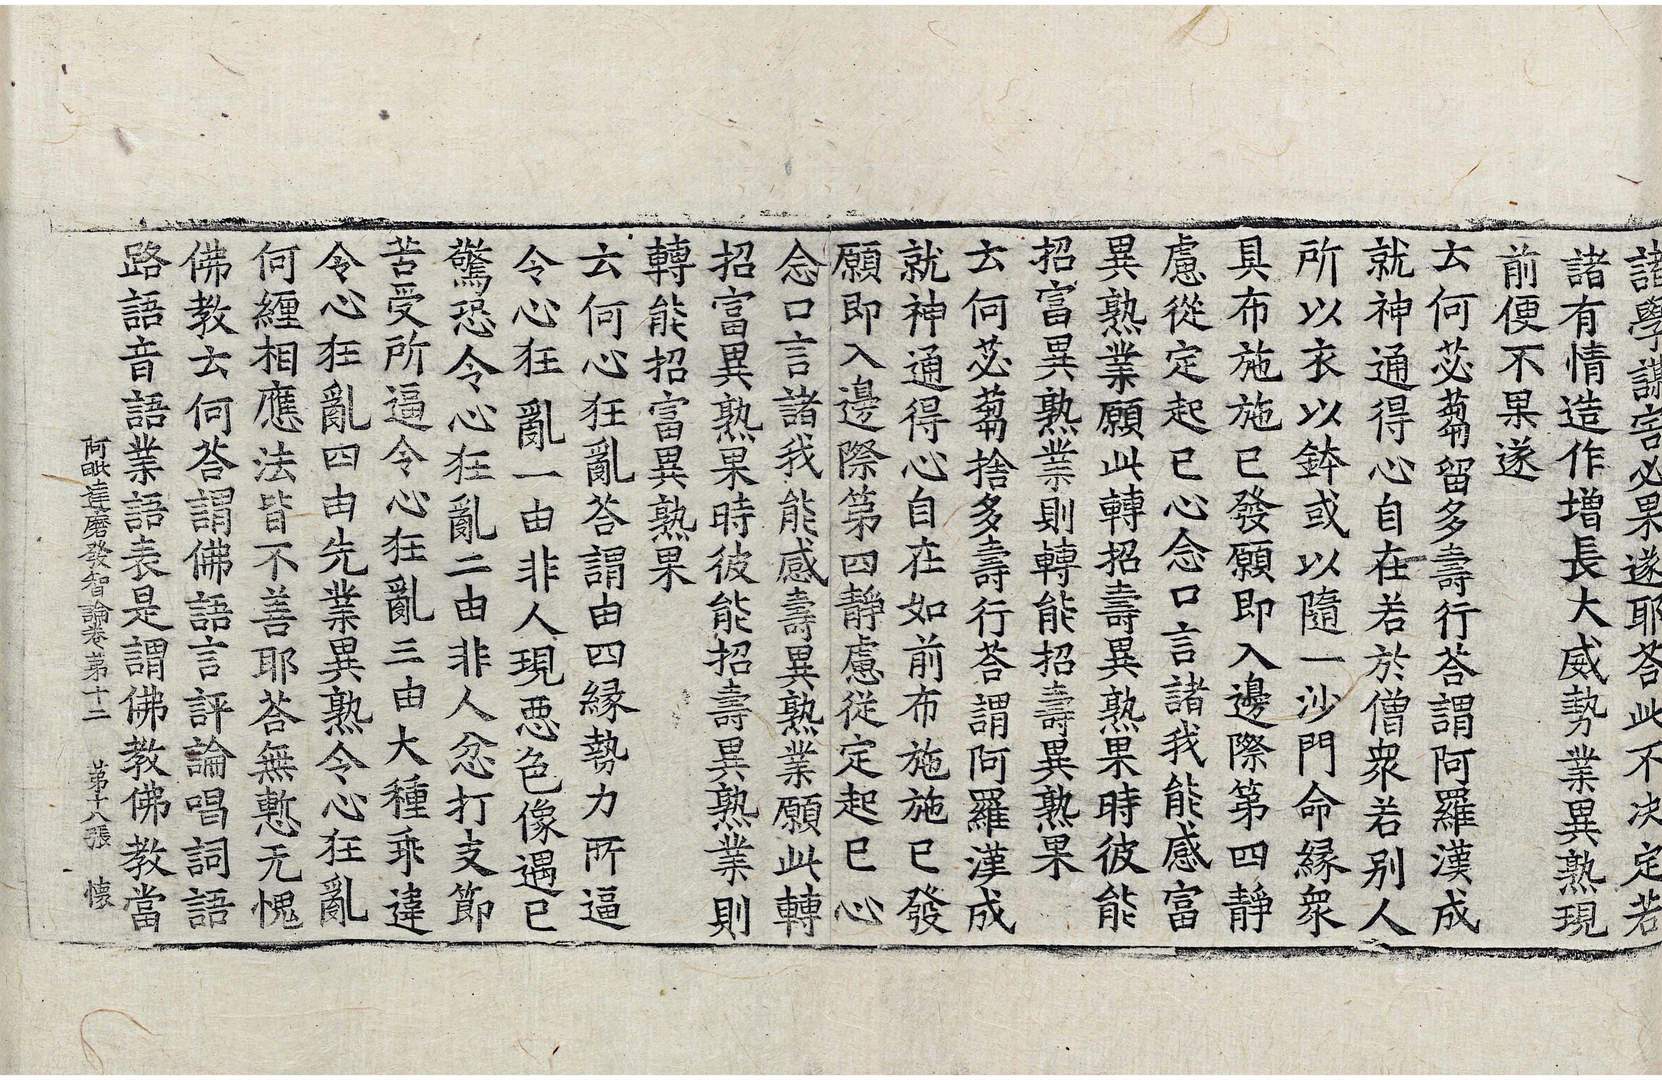 諸學謀害必果遂耶荅此不決定若
諸有情造作增長大威勢業異熟現
前便不果遂
云何苾蒭留多壽行荅謂阿羅漢成
就神通得心自在若於僧衆若別人
所以衣以鉢或以隨一沙門命緣衆
具布施施已發願即入邊際第四靜
慮從定起已心念口言諸我能感富
異熟業願此轉招壽異熟果時彼能
招富異熟業則轉能招壽異熟果
云何苾蒭捨多壽行荅謂阿羅漢成
就神通得心自在如前布施施已發
願即入邊際第四靜慮從定起已心
念口言諸我能感壽異熟業願此轉
招富異熟果時彼能招壽異熟業則
轉能招富異熟果
云何心狂亂荅謂由四緣勢力所逼
令心狂亂一由非人現惡色像遇已
驚恐令心狂亂二由非人忿打支節
苦受所逼令心狂亂三由大種乖違
令心狂亂四由先業異熟令心狂亂
何纏相應法皆不善耶荅無慙无愧
佛教云何荅謂佛語言評論唱詞語
路語音語業語表是謂佛教佛教當
阿毗達磨發智論卷第十二 第十八張 懷